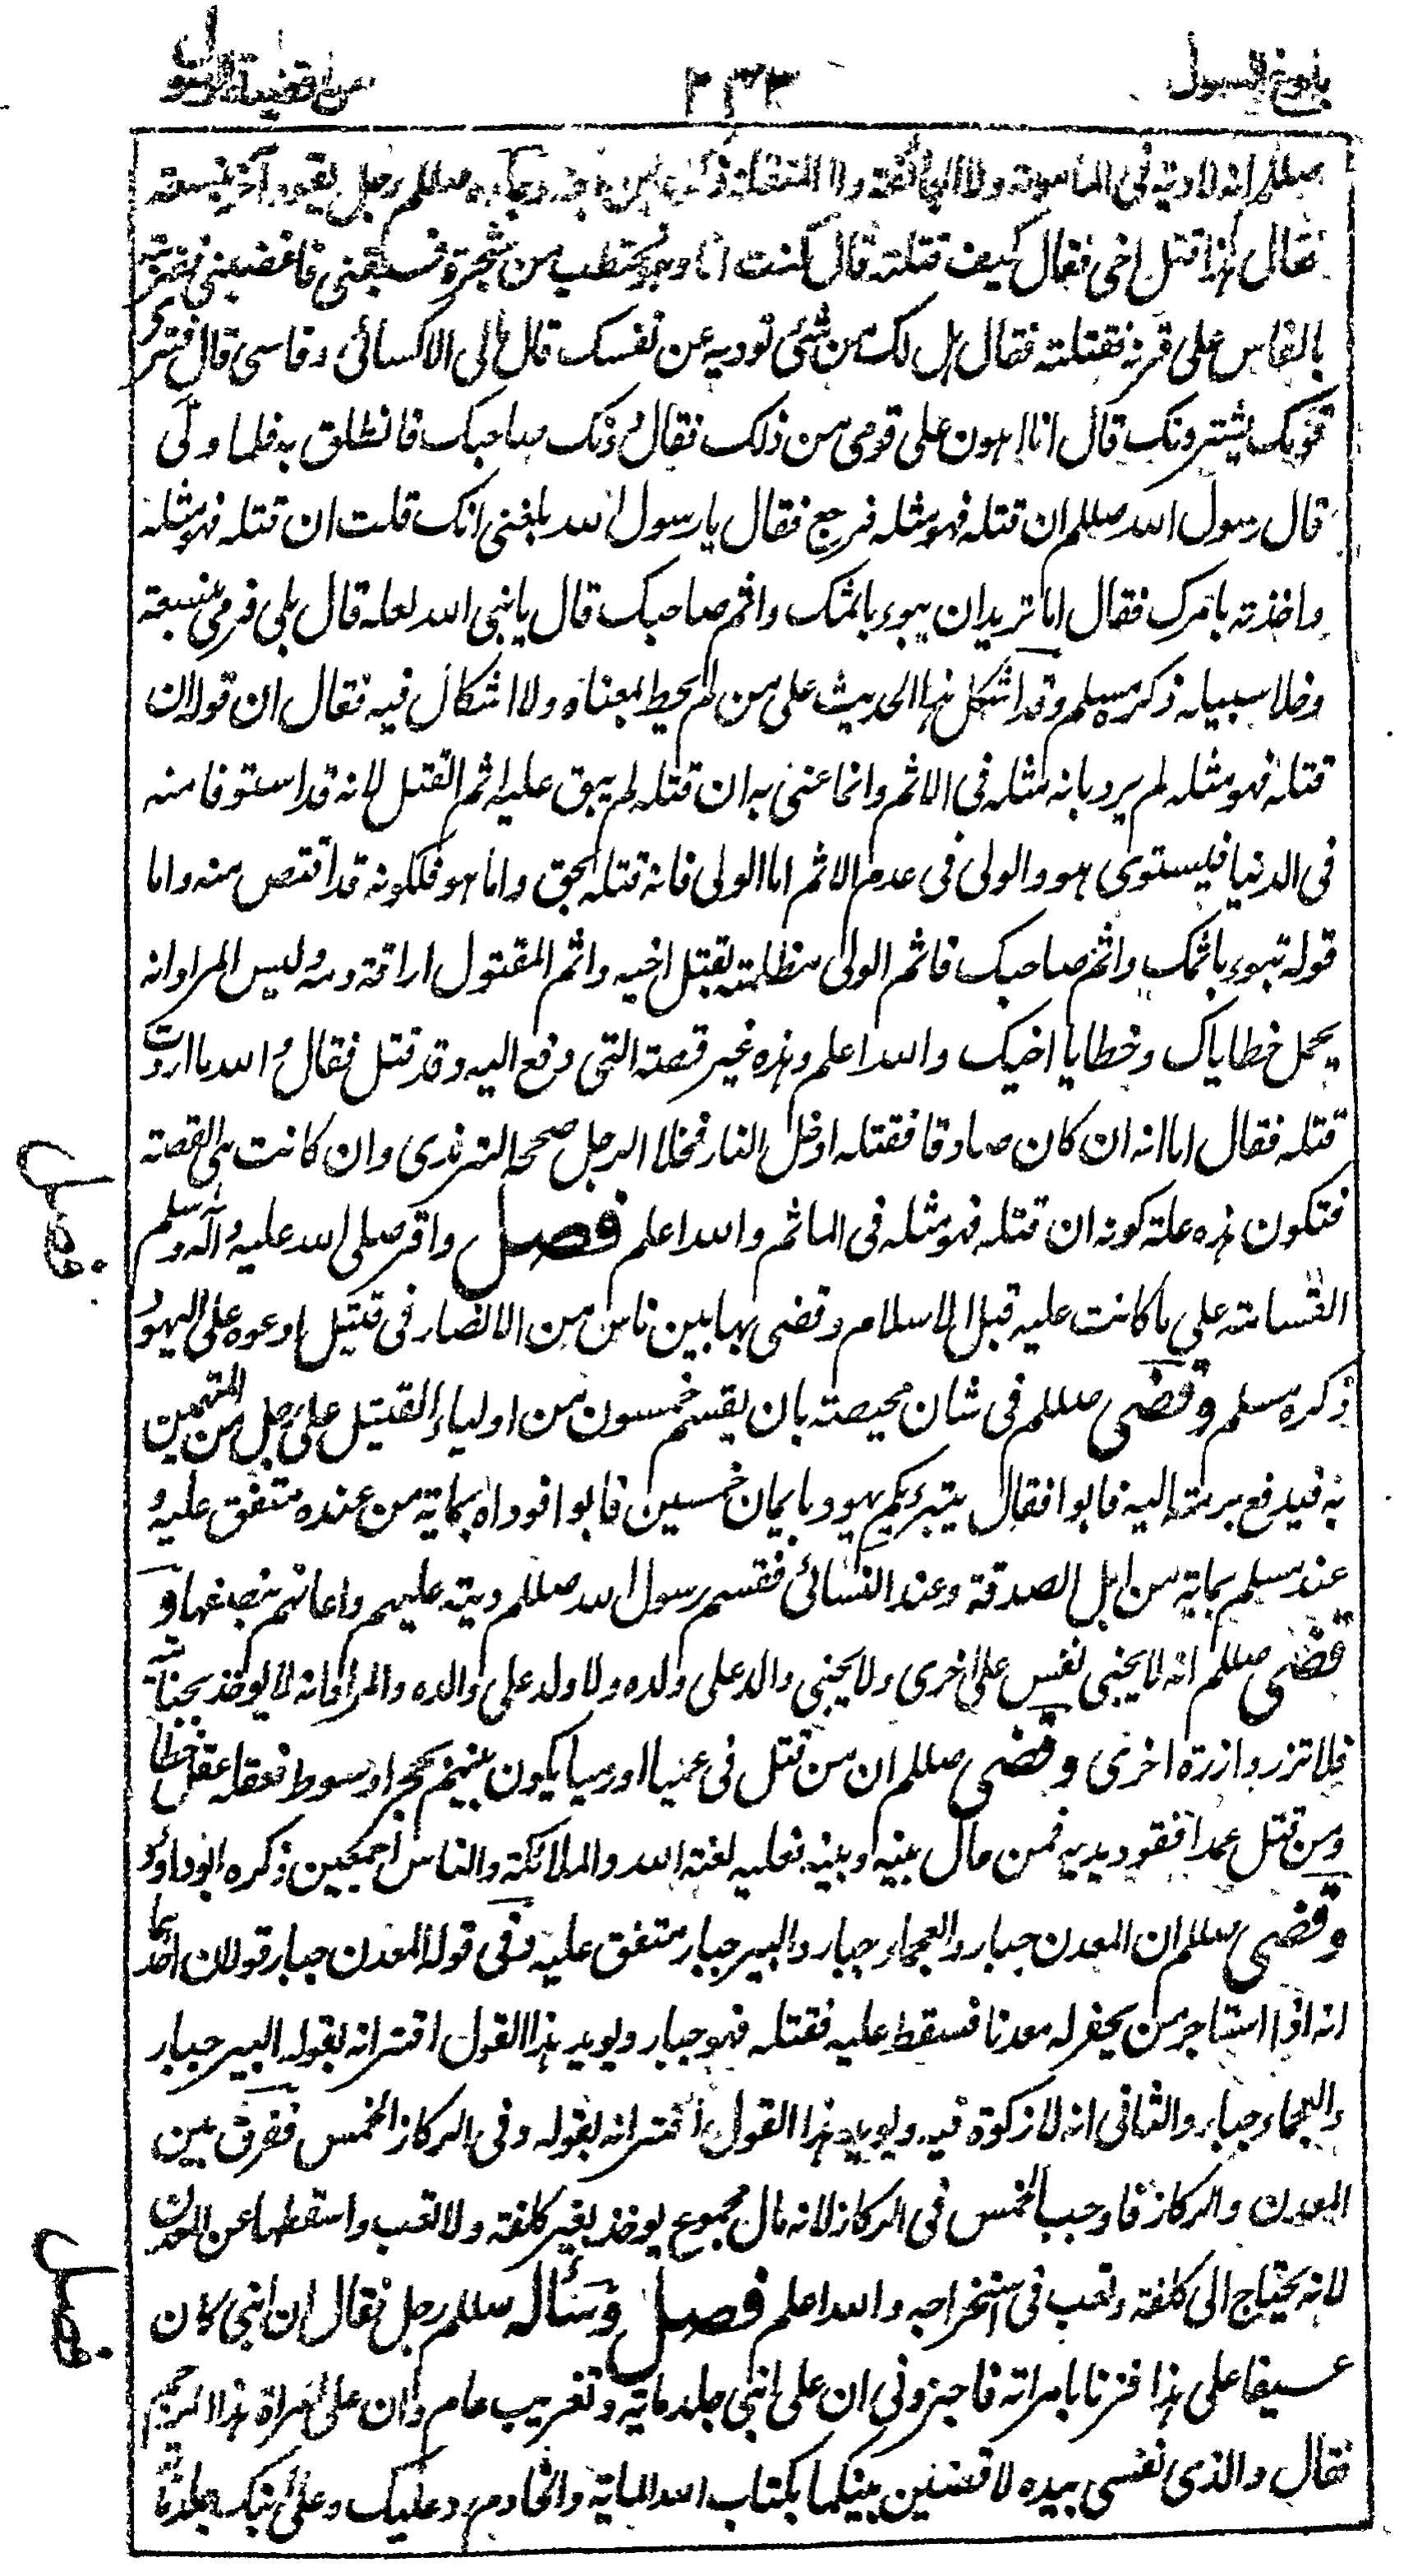 بلوغ السول ٢٣٣ من اقضية الرسول
صللم انه لا دية فى المامومة ولا الجائفة ولا المنقلة ذكره ابن ماجه وجاءه صللم رجل يقود آخر بنسعة
فقال هذا قتل اخى فقال كيف قتلته قال كنت انا وهو نحتطب من شجرة فسبقنى فاغضبنى فضربته
بالفاس على قرنه فقتلته فقال هل لك من شئ توديه عن نفسك قال مالى الا كسائى وفاسى قال فترى
قومك يشترونك قال انا اهون على قومى من ذلك فقال دونك صاحبك فانطلق به فلما ولى
قال رسول الله صللم ان قتله فهو مثله فرجع فقال يا رسول الله بلغنى انك قلت ان قتله فهو مثله
واخذته بامرك فقال اما تريد ان يبوء باثمك واثم صاحبك قال يا نبى الله لعله قال بلى فرمى بنسعته
وخلا سبيله ذكره مسلم وقد اشكل هذا الحديث على من لم يحيط بمعناه ولا اشكال فيه فقال ان قوله ان
قتله فهو مثله لم يرد بانه مثله فى الاثم وانما عنى به ان قتله لم يبق عليه اثم القتل لانه قد استوفا منه
فى الدنيا فيستوى هو والولى فى عدم الاثم اما الولى فانه قتله بحق واما هو فلكونه قد اقتص منه واما
قوله تبوء باثمك واثم صاحبك فاثم الولى مظلمته بقتل اخيه واثم المقتول اراقة دمه وليس المراد انه
يحمل خطاياك وخطايا اخيك والله اعلم وهذه غير قصة التى دفع اليه وقد قتل فقال والله ما اردت
قتله فقال اما انه ان كان صادقا فقتلته ادخل النار فخلا الرجل صححه الترمذى وان كانت هى القصة
فتكون هذه علة كونه ان قتله فهو مثله فى الماثم والله اعلم فصل واقر صلى الله عليه وآله وسلم
فصل
القسامة على ما كانت عليه قبل الاسلام وقضى بها بين ناس من الانصار فى قتيل ادعوه على اليهود
ذكره مسلم وقضى صللم فى شان محيصة بان يقسم خمسون من اولياء القتيل على رجل من المتهمين
به فيدفع برمته اليه فابوا فقال يتبرءكم يهود بايمان خمسين فابوا فوداه بماية من عنده متفق عليه و
عند مسلم بماية من ابل الصدقة وعند النسائى فقسم رسول الله صللم ديته عليهم واعانهم بنصفها و
قضى صللم انه لا يجنى نفس على اخرى ولا يجنى والد على ولده ولا ولد على والده والمراد انه لا يوخذ بجنايته
فلا تزر وازرة اخرى وقضى صللم ان من قتل فى عميا او رميا يكون بينهم بحجر او سوط فعقله عقل خطا
ومن قتل عمدا فقود يديه فمن حال بينه وبينه فعليه لعنة الله والملائكة والناس اجمعين ذكره ابوداؤد
وقضى صللم ان المعدن جبار والعجماء جبار والبير جبار متفق عليه وفى قوله المعدن جبار قولان احدهما
انه اذا استاجر من يحفر له معدنا فسقط عليه فقتله فهو جبار ويويد هذا القول اقترانه بقوله البير جبار
والعجماء جبار والثانى انه لا زكوة فيه ويويد هذا القول اقترانه بقوله وفى الركاز الخمس ففرق بين
المعدن والركاز فاوجب الخمس فى الركاز لانه مال مجموع يوخذ بغير كلفة ولا تعب واسقطها عن المعدن
لانه يحتاج الى كلفة وتعب فى استخراجه والله اعلم فصل وسأله صللم رجل فقال ان ابنى كان
فصل
عسيفا على هذا فزنا بامراته فاخبرونى ان على ابنى جلد ماية وتغريب عام وان على امراة هذا الرجم
فقال والذى نفسى بيده لاقضين بينكما بكتاب الله الماية والخادم رد عليك وعلى ابنك جلد ماية